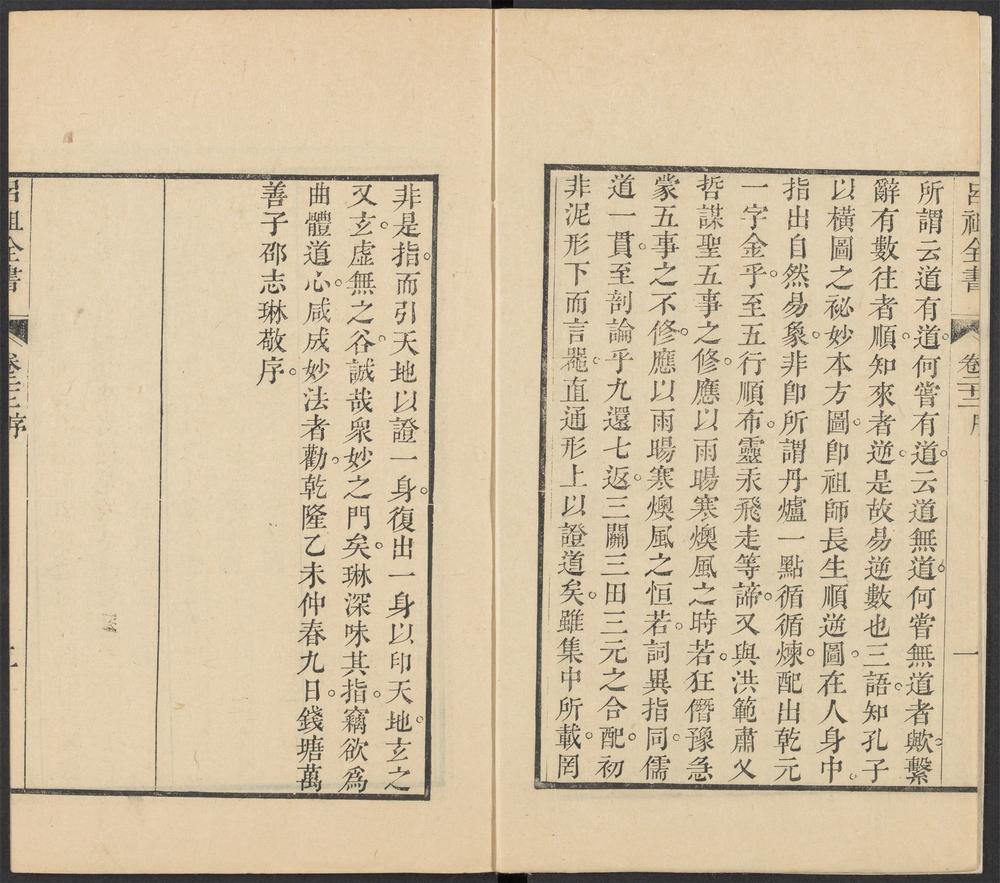 呂祖全書 卷三十二 序 一
所謂云道有道。何嘗有道。云道無道。何嘗無道者歟。繫
辭有數往者順。知來者逆。是故易逆數也三語。知孔子
以橫圖之祕妙本方圖。卽祖師長生順逆圖。在人身中。
指出自然易象。非卽所謂丹爐一點循循煉。配出乾元
一字金乎。至五行順布。靈汞飛走等諦。又與洪範肅乂
哲謀聖五事之修。應以雨暘寒燠風之時若。狂僭豫急
蒙五事之不修。應以雨暘寒燠風之恒若。詞異指同。儒
道一貫。至剖論乎九還七返。三關三田三元之合配。初
非泥形下而言器。直通形上以證道矣。雖集中所載。罔
非是指。而引天地以證一身。復出一身以印天地。玄之
又玄。虛無之谷。誠哉衆妙之門矣。琳深味其指。竊欲爲
曲體道心。咸成妙法者勸。乾隆乙未仲春九日。錢塘萬
善子邵志琳敬序。
呂祖全書 序 二